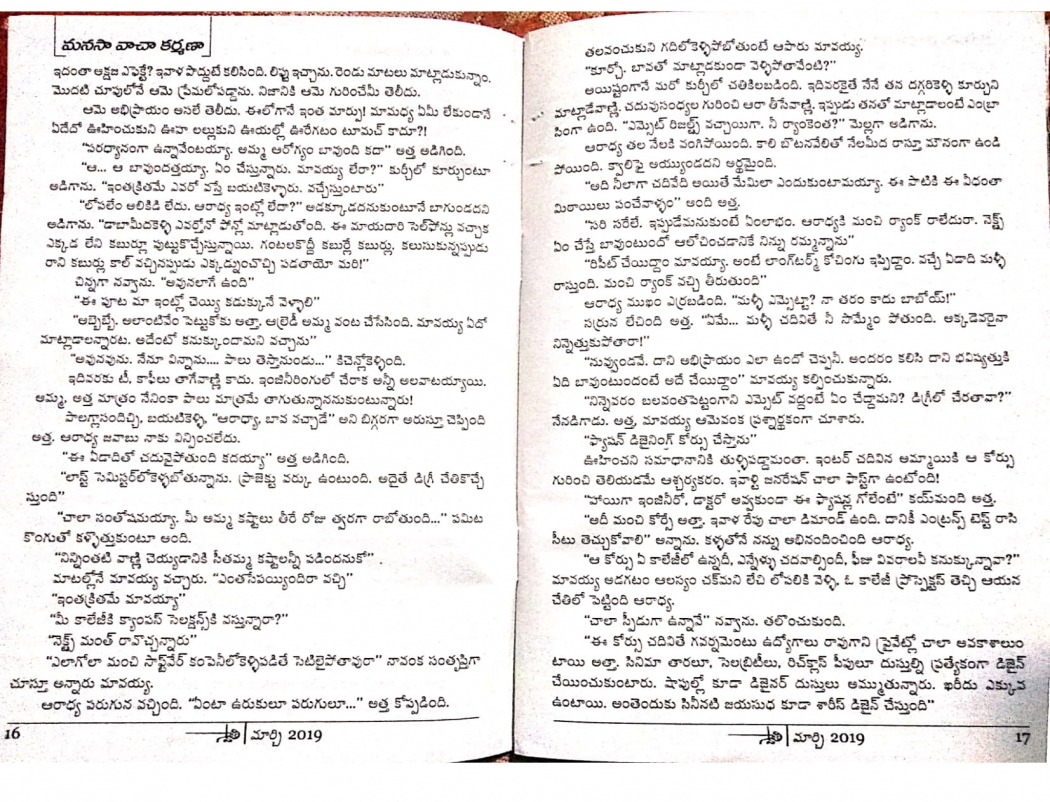 మనసా వాచా కర్మణా
ఇదంతా అక్షజ ఎఫెక్టే? ఇవాళ పొద్దుటే కలిసింది. లిఫ్టు ఇచ్చాను. రెండు మాటలు మాట్లాడుకున్నాం.
మొదటి చూపులోనే ఆమె ప్రేమలోపడ్డాను. నిజానికి ఆమె గురించేమీ తెలీదు.
ఆమె అభిప్రాయం అసలే తెలీదు. ఈలోగానే ఇంత మార్పు! మామధ్య ఏమీ లేకుండానే
ఏదేదో ఊహించుకుని ఊహ లల్లుకుని ఊయల్లో ఊరేగటం టూమచ్ కాదూ?!
"పరధ్యానంగా ఉన్నావేంటయ్యా. అమ్మ ఆరోగ్యం బావుంది కదా" అత్త అడిగింది.
"ఆ... ఆ బావుందత్తయ్యా. ఏం చేస్తున్నారు. మావయ్య లేరా?" కుర్చీలో కూర్చుంటూ
అడిగాను. "ఇంతక్రితమే ఎవరో వస్తే బయటికెళ్ళారు. వచ్చేస్తుంటారు"
"లోపలేం అలికిడి లేదు. ఆరాధ్య ఇంట్లో లేదా?" అడక్కూడదనుకుంటూనే బాగుండదని
అడిగాను. "డాబామీదకెళ్ళి ఎవర్తోనో ఫోన్లో మాట్లాడుతోంది. ఈ మాయదారి సెల్‌ఫోన్లు వచ్చాక
ఎక్కడ లేని కబుర్లూ పుట్టుకొచ్చేస్తున్నాయి. గంటలకొద్దీ కబుర్లే కబుర్లు. కలుసుకున్నప్పుడు
రాని కబుర్లు కాల్ వచ్చినప్పుడు ఎక్కడ్నుంచొచ్చి పడతాయో మరి!"
చిన్నగా నవ్వాను. "అవునలాగే ఉంది"
"ఈ పూట మా ఇంట్లో చెయ్యి కడుక్కునే వెళ్ళాలి"
"అబ్బెబ్బే. అలాంటివేం పెట్టుకోకు అత్తా. ఆల్రెడీ అమ్మ వంట చేసేసింది. మావయ్య ఏదో
మాట్లాడాలన్నారట. అదేంటో కనుక్కుందామని వచ్చాను"
"అవునవును. నేనూ విన్నాను.... పాలు తెస్తానుండు..." కిచెన్లోకెళ్ళింది.
ఇదివరకు టీ, కాఫీలు తాగేవాణ్ణి కాదు. ఇంజినీరింగులో చేరాక అన్నీ అలవాటయ్యాయి.
అమ్మ, అత్త మాత్రం నేనింకా పాలు మాత్రమే తాగుతున్నాననుకుంటున్నారు!
పాలగ్లాసందిచ్చి, బయటికెళ్ళి, "ఆరాధ్యా, బావ వచ్చాడే" అని బిగ్గరగా అరుస్తూ చెప్పింది
అత్త. ఆరాధ్య జవాబు నాకు విన్పించలేదు.
"ఈ ఏడాదితో చదువైపోతుంది కదయ్యా" అత్త అడిగింది.
"లాస్ట్ సెమిస్టర్‌లోకెళ్ళబోతున్నాను. ప్రాజెక్టు వర్కు ఉంటుంది. అదైతే డిగ్రీ చేతికొచ్చే
స్తుంది"
"చాలా సంతోషమయ్యా. మీ అమ్మ కష్టాలు తీరే రోజు త్వరగా రాబోతుంది..." పమిట
కొంగుతో కళ్ళొత్తుకుంటూ అంది.
"నిన్నింతటి వాణ్ణి చెయ్యడానికి సీతమ్మ కష్టాలన్నీ పడిందనుకో"
మాటల్లోనే మావయ్య వచ్చారు. "ఎంతసేపయ్యిందిరా వచ్చి"
"ఇంతక్రితమే మావయ్యా"
"మీ కాలేజీకి క్యాంపస్ సెలక్షన్స్‌కి వస్తున్నారా?"
"నెక్స్ట్ మంత్ రావొచ్చన్నారు"
"ఎలాగోలా మంచి సాఫ్ట్‌వేర్ కంపెనీలోకెళ్ళిపడితే సెటిలైపోతావురా" నావంక సంతృప్తిగా
చూస్తూ అన్నారు మావయ్య.
ఆరాధ్య పరుగున వచ్చింది. "ఏంటా ఉరుకులూ పరుగులూ..." అత్త కోప్పడింది.
16
మార్చి 2019
తలవంచుకుని గదిలోకెళ్ళిపోబోతుంటే ఆపారు మావయ్య.
"కూర్చో. బావతో మాట్లాడకుండా వెళ్ళిపోతావేంటి?"
అయిష్టంగానే మరో కుర్చీలో చతికిలబడింది. ఇదివరకైతే నేనే తన దగ్గరికెళ్ళి కూర్చుని
మాట్లాడేవాణ్ణి. చదువుసంధ్యల గురించి ఆరా తీసేవాణ్ణి. ఇప్పుడు తనతో మాట్లాడాలంటే ఎంబ్రా
సింగా ఉంది. "ఎమ్సెట్ రిజల్ట్స్ వచ్చాయిగా. నీ ర్యాంకెంత?" మెల్లగా అడిగాను.
ఆరాధ్య తల నేలకి వంగిపోయింది. కాలి బొటనవేలితో నేలమీద రాస్తూ మౌనంగా ఉండి
పోయింది. క్వాలిఫై అయ్యుండదని అర్థమైంది.
"అది నీలాగా చదివేది అయితే మేమిలా ఎందుకుంటామయ్యా. ఈ పాటికి ఈ వీధంతా
మిఠాయిలు పంచేవాళ్ళం" అంది అత్త.
"సరి సరేలే. ఇప్పుడేమనుకుంటే ఏంలాభం. ఆరాధ్యకి మంచి ర్యాంక్ రాలేదురా. నెక్స్ట్
ఏం చేస్తే బావుంటుందో ఆలోచించడానికే నిన్ను రమ్మన్నాను"
"రిపీట్ చేయిద్దాం మావయ్యా. అంటే లాంగ్‌టర్మ్ కోచింగు ఇప్పిద్దాం. వచ్చే ఏడాది మళ్ళీ
రాస్తుంది. మంచి ర్యాంక్ వచ్చి తీరుతుంది"
ఆరాధ్య ముఖం ఎర్రబడింది. "మళ్ళీ ఎమ్సెట్టా? నా తరం కాదు బాబోయ్!"
సర్రున లేచింది అత్త. "ఏమే... మళ్ళీ చదివితే నీ సొమ్మేం పోతుంది. అక్కడెవరైనా
నిన్నెత్తుకుపోతారా!"
"నువ్వుండవే. దాని అభిప్రాయం ఎలా ఉందో చెప్పనీ. అందరం కలిసి దాని భవిష్యత్తుకి
ఏది బావుంటుందంటే అదే చేయిద్దాం" మావయ్య కల్పించుకున్నారు.
"నిన్నెవరం బలవంతపెట్టంగాని ఎమ్సెట్ వద్దంటే ఏం చేద్దామని? డిగ్రీలో చేరతావా?"
నేనడిగాడు. అత్త, మావయ్య ఆమెవంక ప్రశ్నార్థకంగా చూశారు.
"ఫ్యాషన్ డిజైనింగ్ కోర్సు చేస్తాను"
ఊహించని సమాధానానికి తుళ్ళిపడ్డామంతా. ఇంటర్ చదివిన అమ్మాయికి ఆ కోర్సు
గురించి తెలియడమే ఆశ్చర్యకరం. ఇవాళ్టి జనరేషన్ చాలా ఫాస్ట్‌గా ఉంటోంది!
"హాయిగా ఇంజినీరో, డాక్టరో అవ్వకుండా ఈ ఫ్యాషన్ల గోలేంటే" కయ్‌మంది అత్త.
"అదీ మంచి కోర్సే అత్తా. ఇవాళ రేపు చాలా డిమాండ్ ఉంది. దానికీ ఎంట్రన్స్ టెస్ట్ రాసి
సీటు తెచ్చుకోవాలి" అన్నాను. కళ్ళతోనే నన్ను అభినందించింది ఆరాధ్య.
"ఆ కోర్సు ఏ కాలేజీలో ఉన్నదీ, ఎన్నేళ్ళు చదవాల్సిందీ, ఫీజు వివరాలవీ కనుక్కున్నావా?"
మావయ్య అడగటం ఆలస్యం చక్‌మని లేచి లోపలికి వెళ్ళి, ఓ కాలేజీ ప్రోస్పెక్టస్ తెచ్చి ఆయన
చేతిలో పెట్టింది ఆరాధ్య.
"చాలా స్పీడుగా ఉన్నావే" నవ్వాను. తలొంచుకుంది.
"ఈ కోర్సు చదివితే గవర్నమెంటు ఉద్యోగాలు రావుగాని ప్రైవేట్లో చాలా అవకాశాలుం
టాయి అత్తా. సినిమా తారలూ, సెలబ్రిటీలు, రిచ్‌క్లాస్ పీపులూ దుస్తుల్ని ప్రత్యేకంగా డిజైన్
చేయించుకుంటారు. షాపుల్లో కూడా డిజైనర్ దుస్తులు అమ్ముతున్నారు. ఖరీదు ఎక్కువ
ఉంటాయి. అంతెందుకు సినీనటి జయసుధ కూడా శారీస్ డిజైన్ చేస్తుంది"
మార్చి 2019
17